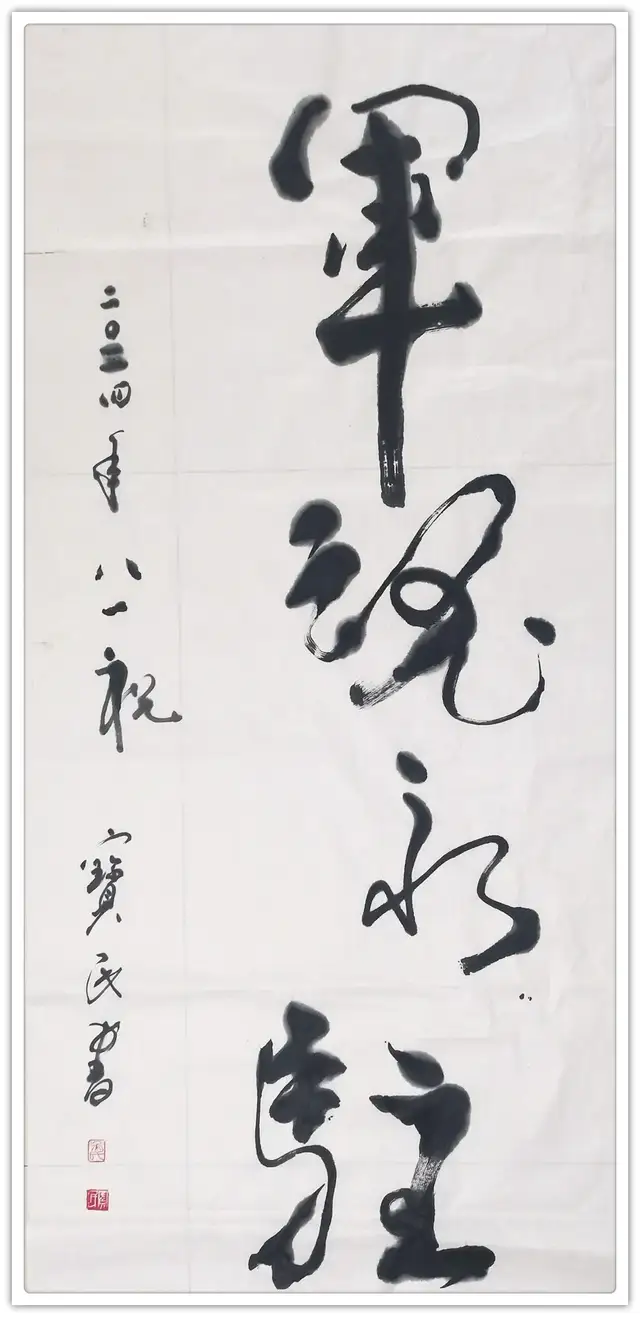 軍魂永駐
二〇二四年 八一祝 寶民書